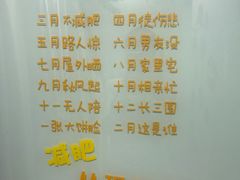 三月不减肥 四月徒伤悲
五月路人惊 六月男友没
七月屋外晒 八月家里宅
九月秋风起 十月相亲忙
十一无人陪 十二长三圈
一张大饼脸 二月这是谁
减肥